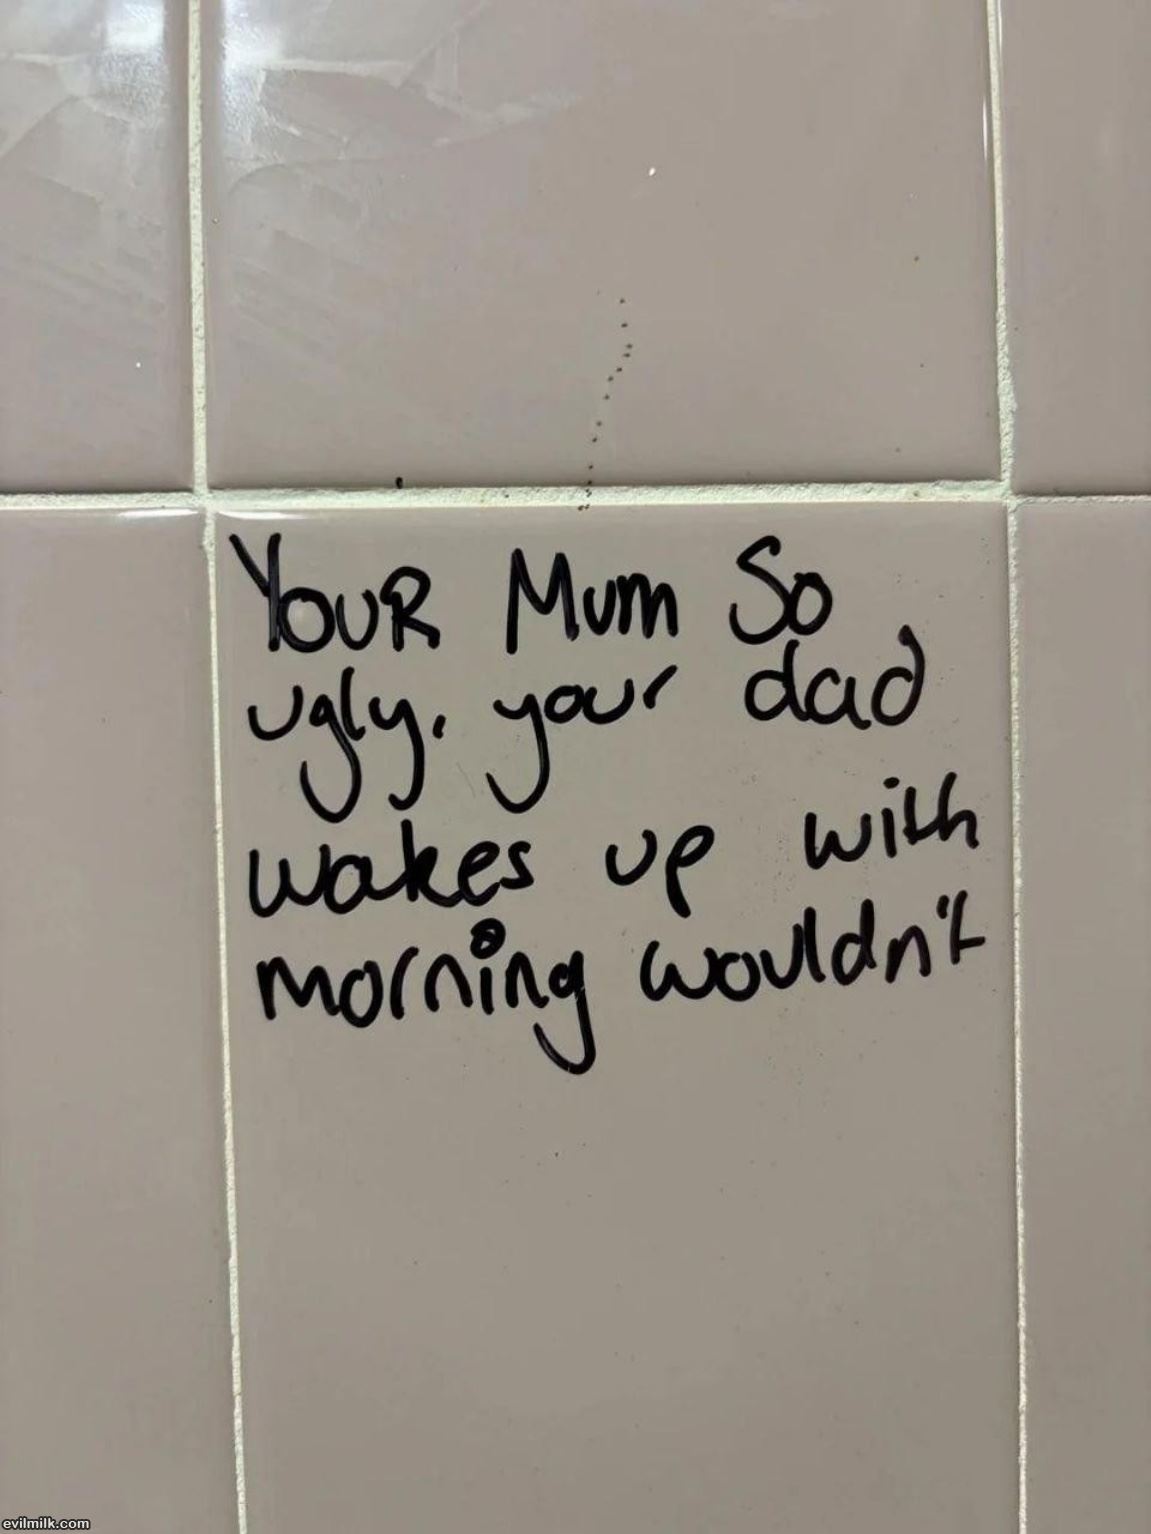 YOUR Mum So
ugly, your dad
wakes up with
morning wouldn't
evilmilk.com